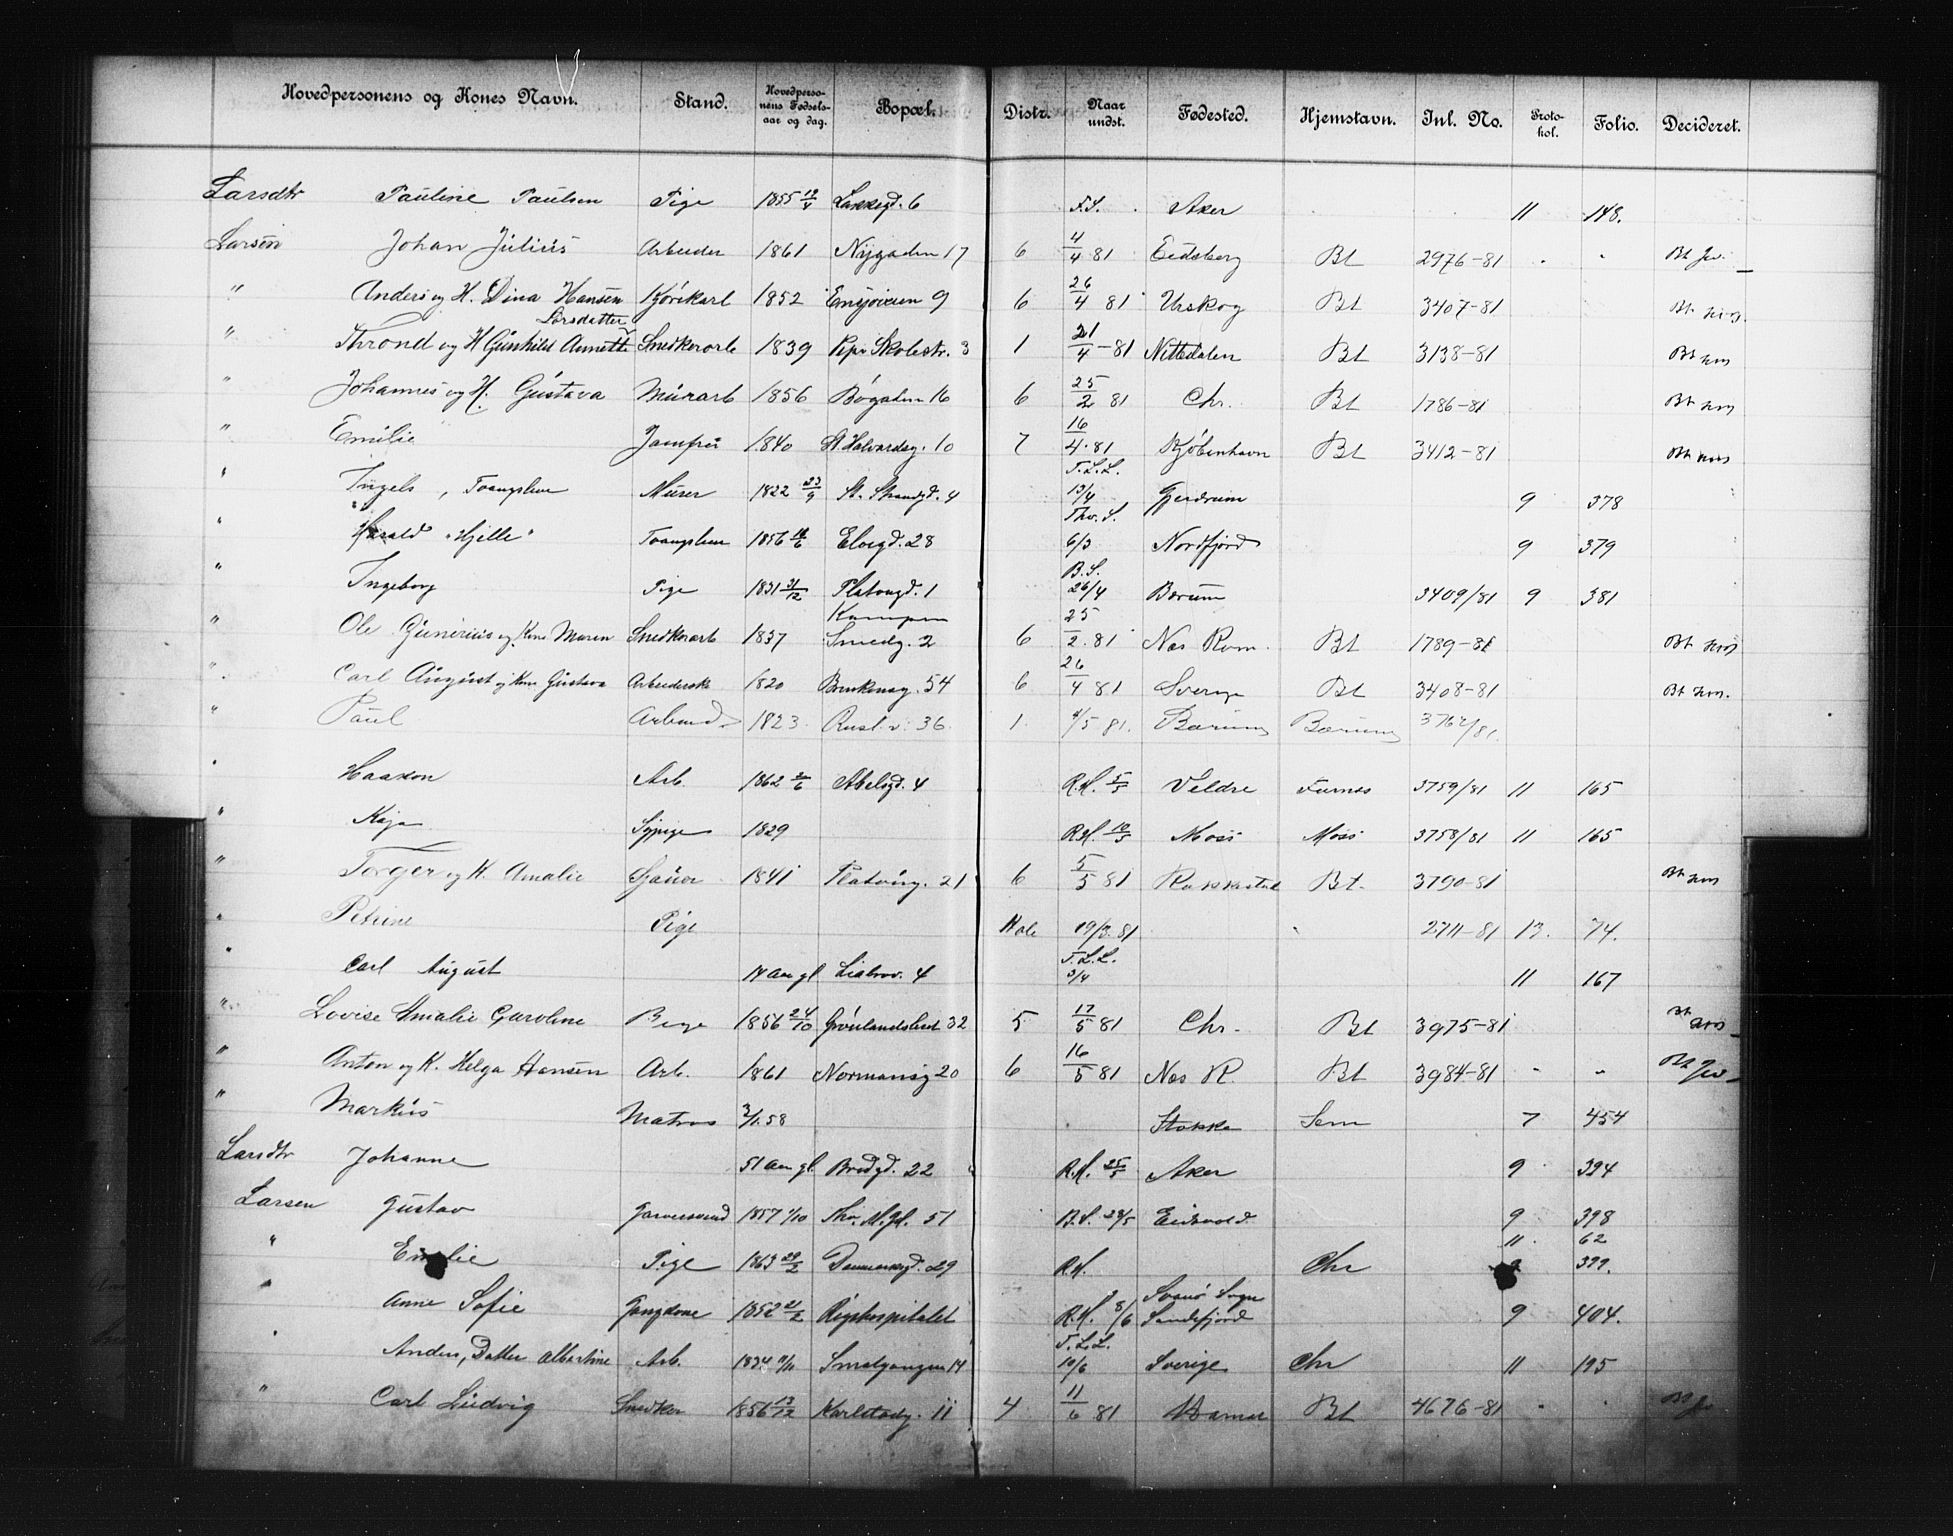 Hovedpersonens og Kones Navn. Stand. Hovedpersonens Fødselsaar og dag. Bopæl. Distr. Naar undst. Fødested. Hjemstavn. Inl. No. Protokol. Folio. Decideret.
Larsdtr Pauline Paulsen Pige 1855 19/4 Lakkegd. 6 F.S. Aker 11 148.
Larsen Johan Julius Arbeider 1861 Nygaden 17 6 4/4 81 Eidsberg Bt 2976-81 Bt
" Anders og H. Dina Hansen Kjørekarl 1852 Ensjøveien 9 6 26/4 81 Urskog Bt 3407-81 Bt
Larsdatter
" Thrond og H Gunhild Annette Snedkerarb 1839 Pip. Skolestr. 3 1 21/4-81 Nittedalen Bt 3138-81 Bt
" Johannes og H. Gustava Murarb 1856 Bøgaden 16 6 25/2 81 Chr. Bt 1786-81 Bt
" Emilie Jomfru 1840 St. Halvardsg. 10 7 16/4 81 Kjøbenhavn Bt 3412-81 Bt
" Ingels, Tvangslem Murer 1822 23/9 St. Strandgd. 4 T.L.L. 13/4 Gjerdrum 9 378
" Harald "Hjelle" Tvangslem 1856 16/6 Elvegd. 28 Thv. S. 6/3 Nordfjord 9 379
" Ingeborg Pige 1831 31/12 Platougd. 1 B.S. 26/4 Bærum 3409/81 9 381
" Ole Gunerius og Kone Maren Snedkerarb 1837 Kampen Smedg. 2 6 25/2 81 Nes Rom. Bt 1789-81 Bt
" Carl August og Kone Gustava Arbeidersk 1820 Brinkensg. 54 6 26/4 81 Sverige Bt 3408-81 Bt
" Paul Arbeid. 1823 Rusl. v. 36 1. 4/5 81. Bærum Bærum 3762/81.
" Haakon Arb. 1862 2/6 Abelsgd. 4 R.H. 5/5 Veldre Furnes 3759/81 11 165
" Kaja Sypige 1829 R.H. 10/5 Moss Moss 3758/81 11 165
" Torger og K. Amalie Sjauer 1841 Platoug. 21 6 5/5 81 Rakkestad Bt. 3790-81 Bt
" Petrine Pige Kole 19/3. 81 2711-81 13. 74.
" Carl August 14 Aar gl. Liabrov. 4 T.L.L. 3/4 11 167
" Lovise Amalie Caroline Pige 1856 24/10 Grønlandsleret 32 5 17/5 81 Chr. Bt 3975-81 Bt
" Anton og K. Helga Hansen Arb. 1861 Normansg 20 6 16/5 81 Nes R. Bt 3984-81 Bt
" Markus Matros 3/1. 58 Stokke Sem 7 454
Larsdtr Johanne 51 Aar gl. Bredgd. 22 R.H. 25/5 Aker 9 394
Larsen Gustav Garversvend 1857 1/10 Thv. M. gd. 51 B.S. 28/5 Eidsvold 9 398
11 62
" Emilie Pige 1863 29/2 Danmarksgd. 29 R.H. Chr 9 399.
" Anne Sofie Gangkone 1852 21/2 Rigshospitalet R.H. 8/6 Sogn Sandefjord 9 404.
" Anders, Datter Albertine Arb. 1834 9/11 Smalgangen 14 T.L.L. 10/6 Sverige Chr 11 195
" Carl Ludvig Snedker 1856 13/12 Karlstadg. 11 4 11/6 81 Hamar Bt 4676-81 Bt